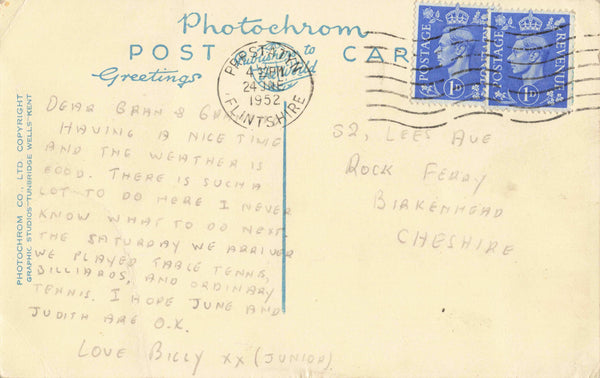 Photochrom
POST CARD
Publishers to
the World
Greetings
PRESTATYN
4
24
1952
FLINTSHIRE
POSTAGE REVENUE
1D
POSTAGE REVENUE
1D
PHOTOCHROM CO., LTD. COPYRIGHT
GRAPHIC STUDIOS-TUNBRIDGE WELLS-KENT
DEAR GRAN &
HAVING A NICE TIME
AND THE WEATHER IS
GOOD. THERE IS SUCH A
LOT TO DO HERE I NEVER
KNOW WHAT TO DO NEXT.
THE SATURDAY WE ARRIVED
WE PLAYED TABLE TENNIS,
BILLIARDS, AND ORDINARY
TENNIS. I HOPE JUNE AND
JUDITH ARE O.K.
LOVE BILLY XX (JUNIOR)
52, LEES AVE
ROCK FERRY
BIRKENHEAD
CHESHIRE.